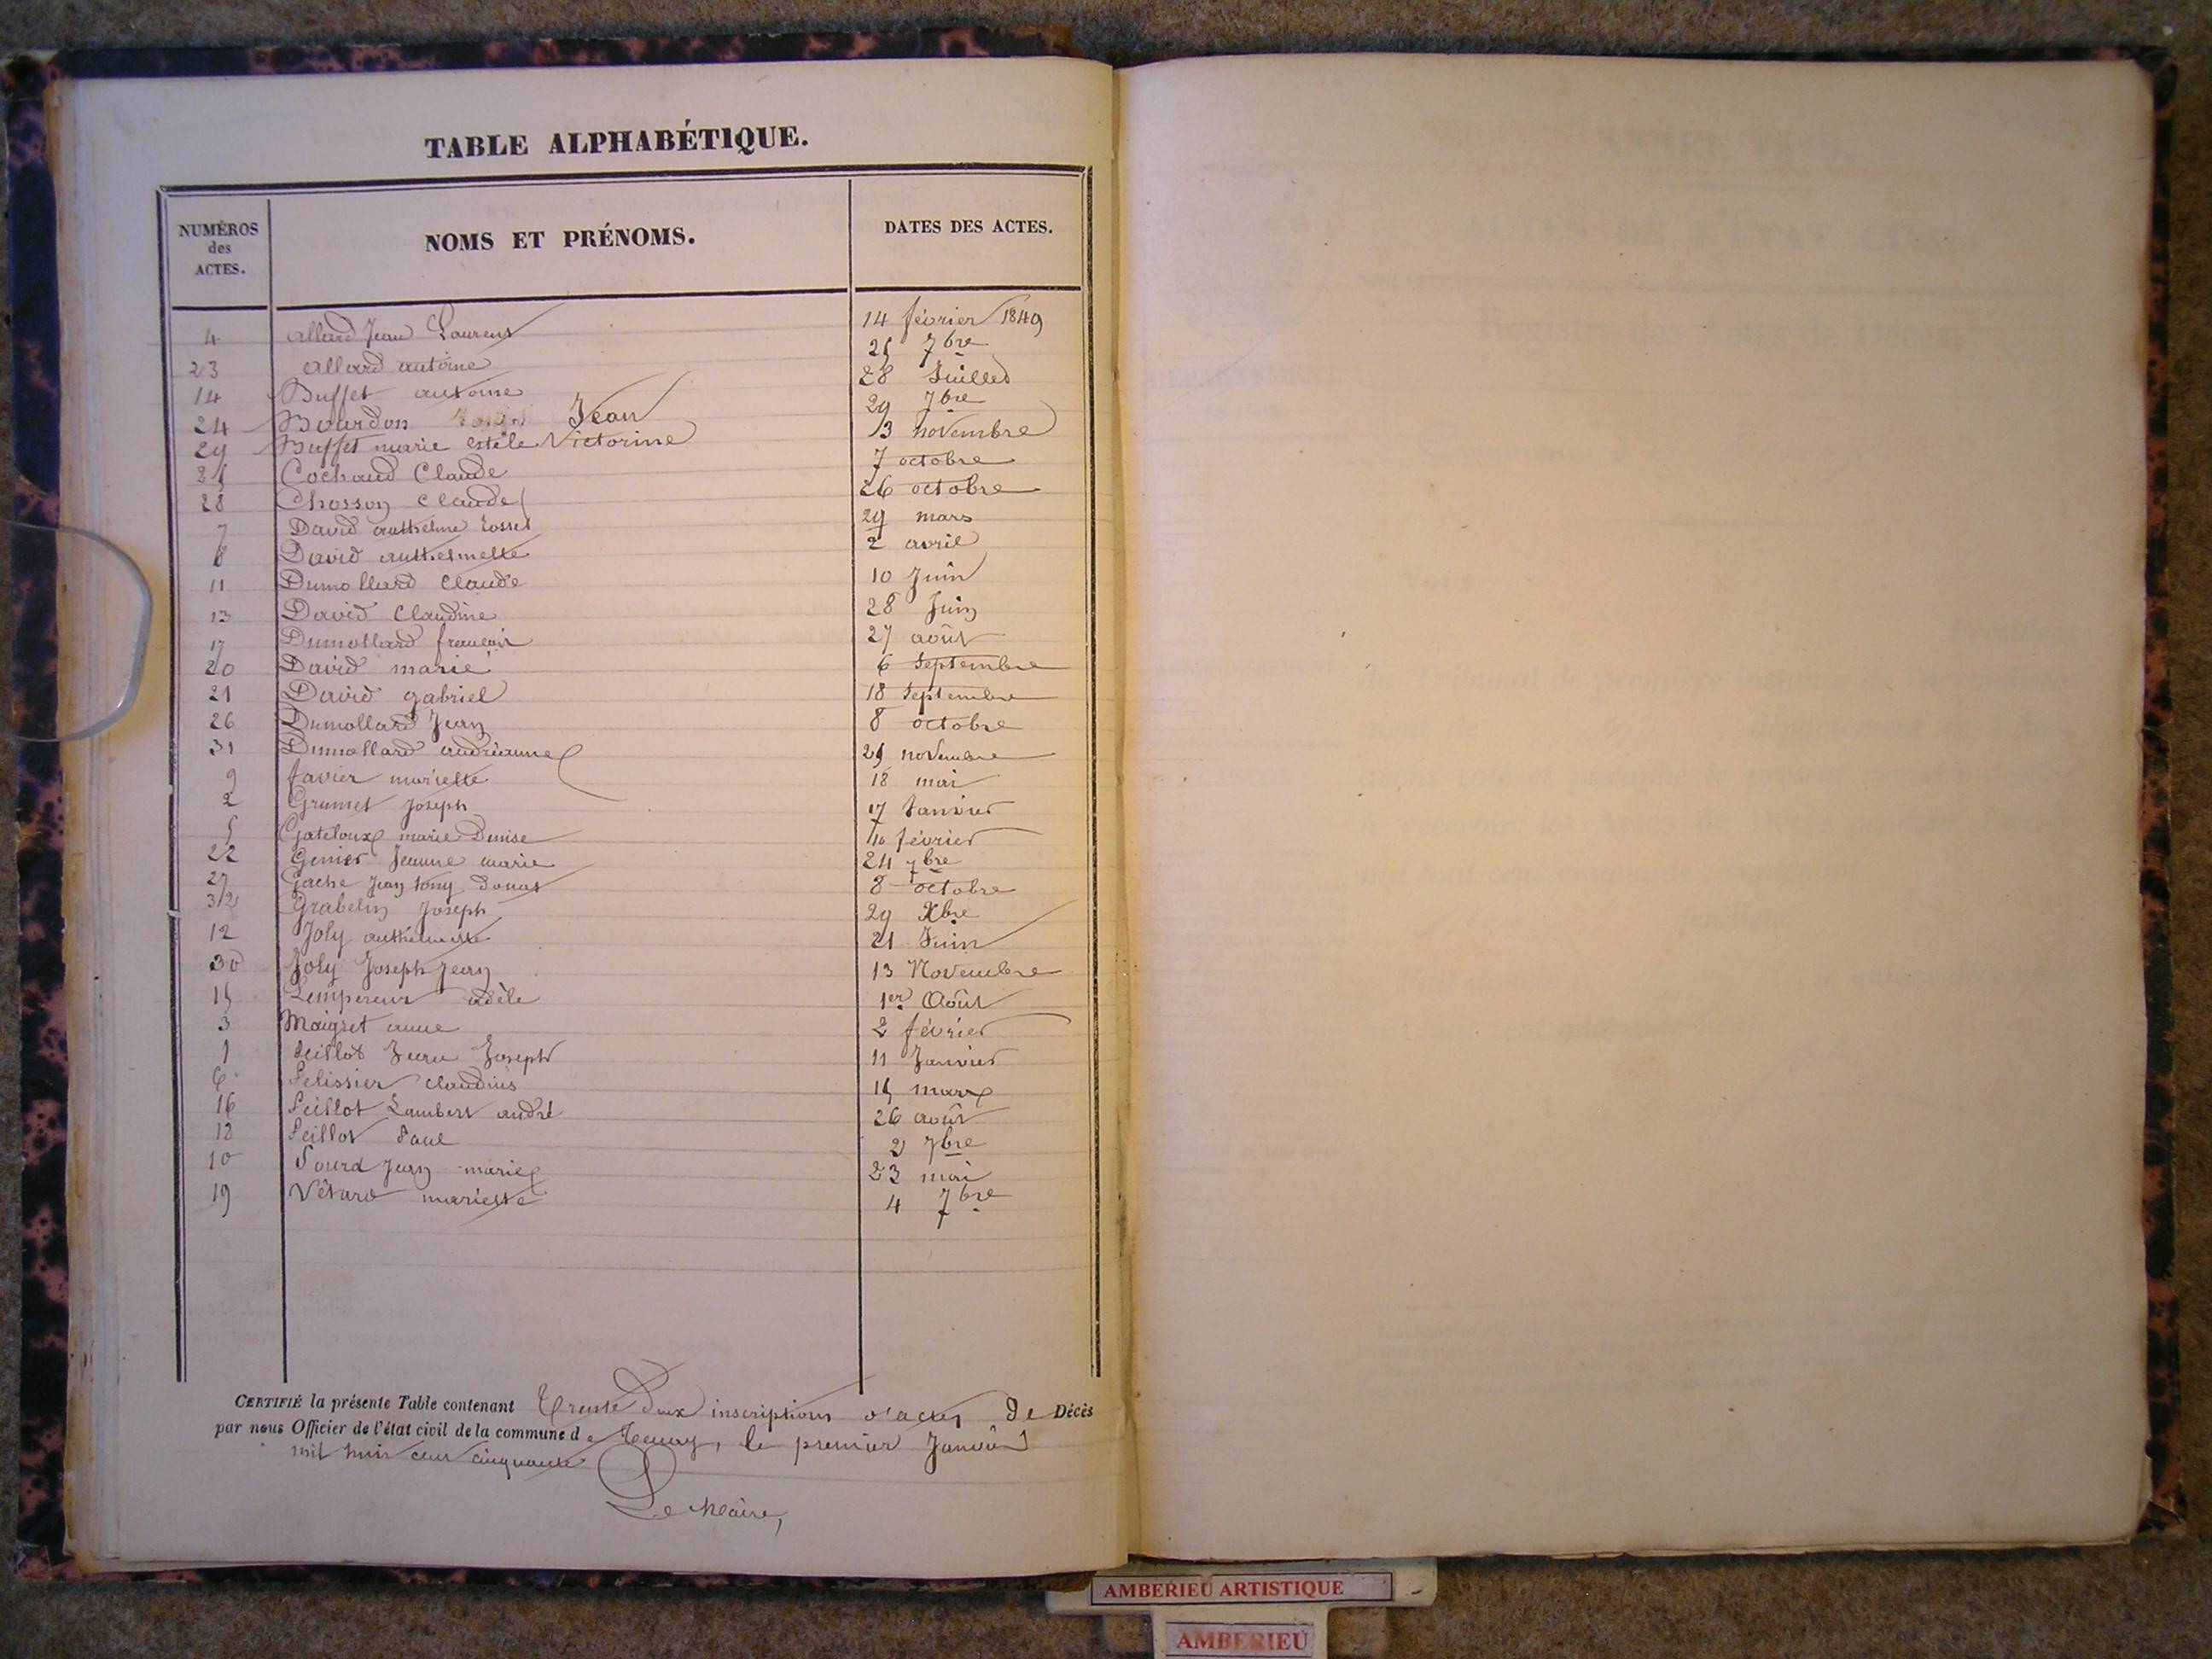 TABLE ALPHABÉTIQUE.
NUMÉROS des ACTES. NOMS ET PRÉNOMS. DATES DES ACTES.
4 Allard Jean Laurent 14 février 1849
23 Allard antoine 25 7bre
14 Buffet antoine 28 Juillet
24 Bourdon Jean 29 7bre
29 Buffet marie estele Victorine 13 novembre
25 Cochaud Claude 7 octobre
28 Chosson Claude 26 octobre
7 David anthelme 29 mars
8 David anthelmette 2 avril
11 Dumollard Claude 10 Juin
13 David Claudine 28 Juin
17 Dumollard francois 27 août
20 David marie 6 Septembre
21 David gabriel 18 Septembre
26 Dumollard Jean 8 octobre
31 Dumollard andréanne 25 novembre
9 favier mariette 18 mai
2 Grumet Joseph 17 Janvier
5 Gateloux marie Denise février
22 Genier Jeanne marie 24 7bre
27 Gache Jean tony Donat 8 octobre
32 Grabelin Joseph 29 Xbre
12 Joly anthelmette 21 Juin
30 Joly Joseph Jean 13 Novembre
15 Lempereur adèle 1er Août
3 Maigret anne 2 février
1 Peillot Jean Joseph 11 Janvier
6 Pelissier Claudius 15 mars
16 Peillot Lambert andré 26 août
18 Peillot Paul 2 7bre
10 Sourd Jean marie 23 mai
19 Vétard mariette 4 7bre
CERTIFIÉ la présente Table contenant Trente Deux inscriptions d'actes de Décès
par nous Officier de l'état civil de la commune de Tenay, le premier Janvier
mil huit cent cinquante
Le Maire,
AMBERIEU ARTISTIQUE
AMBERIEU